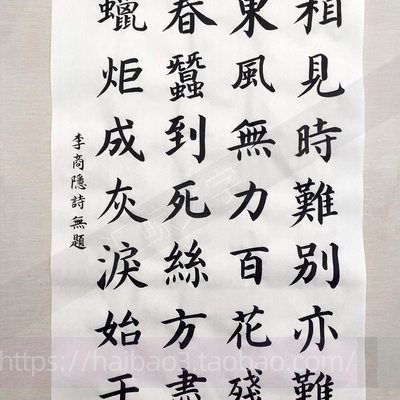 相見時難別亦難
東風無力百花殘
春蠶到死絲方盡
蠟炬成灰淚始干
李商隱詩無題
https://haibao3.taobao.com/